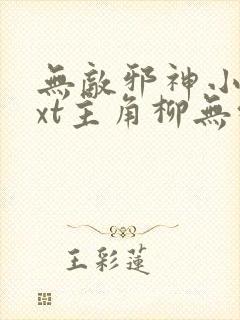 無敵邪神.小
xt主角柳無
王彩蓮